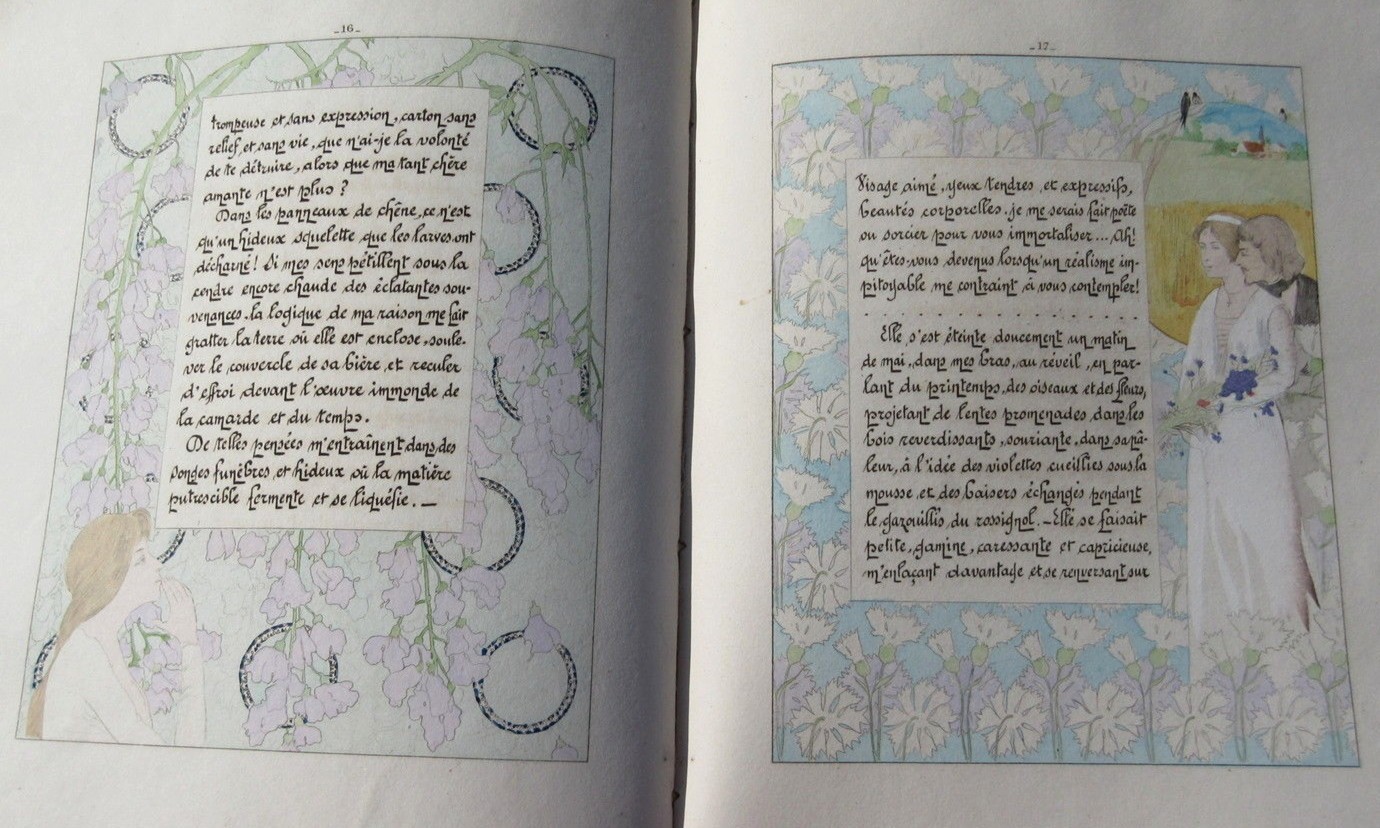 _16_
trompeuse et sans expression, carton sans
relief et sans vie, que n'ai-je la volonté
de te détruire, alors que ma tant chère
amante n'est plus ?
Dans les panneaux de chêne, ce n'est
qu'un hideux squelette que les larves ont
décharné! Si mes sens pétillent sous la
cendre encore chaude des éclatantes sou-
venances, la logique de ma raison me fait
gratter la terre où elle est enclose, soule-
ver le couvercle de sa bière et reculer
d'effroi devant l'œuvre immonde de
la camarde et du temps.
De telles pensées m'entraînent dans des
songes funèbres et hideux où la matière
putrescible fermente et se liquéfie. —
_17_
Visage aimé, yeux tendres et expressifs,
beautés corporelles, je me serais fait poète
ou sorcier pour vous immortaliser... Ah!
qu'êtes-vous devenus lorsqu'un réalisme im-
pitoyable me contraint à vous contempler!
. . . . . . . . . . . . . . . . . . . .
Elle s'est éteinte doucement un matin
de mai, dans mes bras, au réveil, en par-
lant du printemps, des oiseaux et des fleurs,
projetant de lentes promenades dans les
bois reverdissants, souriante, dans sa pâ-
leur, à l'idée des violettes cueillies sous la
mousse et des baisers échangés pendant
le gazouillis du rossignol. — Elle se faisait
petite, gamine, caressante et capricieuse,
m'enlaçant davantage et se renversant sur